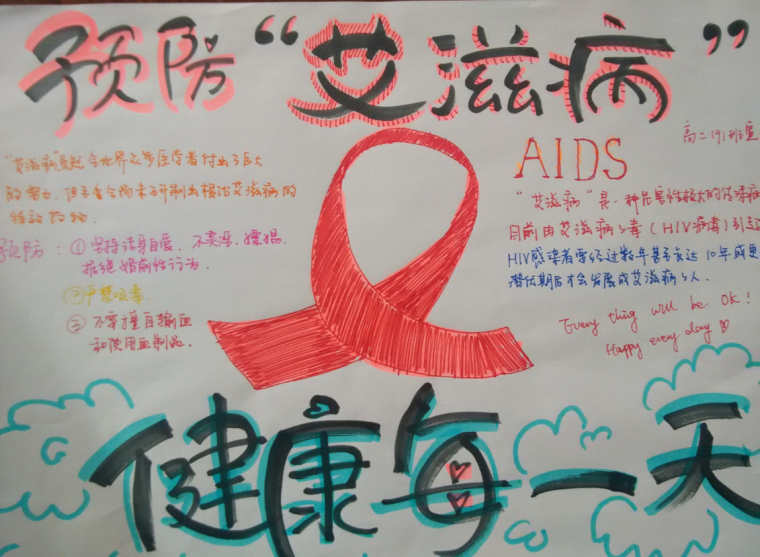 预防“艾滋病”
高二(9)班宣
AIDS
“艾滋病”虽然全世界众多医学者付出了巨大
的努力,但至今尚未研制出根治艾滋病的
特效药物.
预防:①坚持洁身自爱、不卖淫、嫖娼.
拒绝婚前性行为.
②严禁吸毒.
③不擅自输血
和使用血制品.
“艾滋病”是一种危害性极大的传染病
目前由艾滋病病毒(HIV病毒)引起
HIV感染者要经过数年甚至长达10年或更
潜伏期后才会发展成艾滋病病人.
Every thing will be ok!
Happy every day
健康每一天